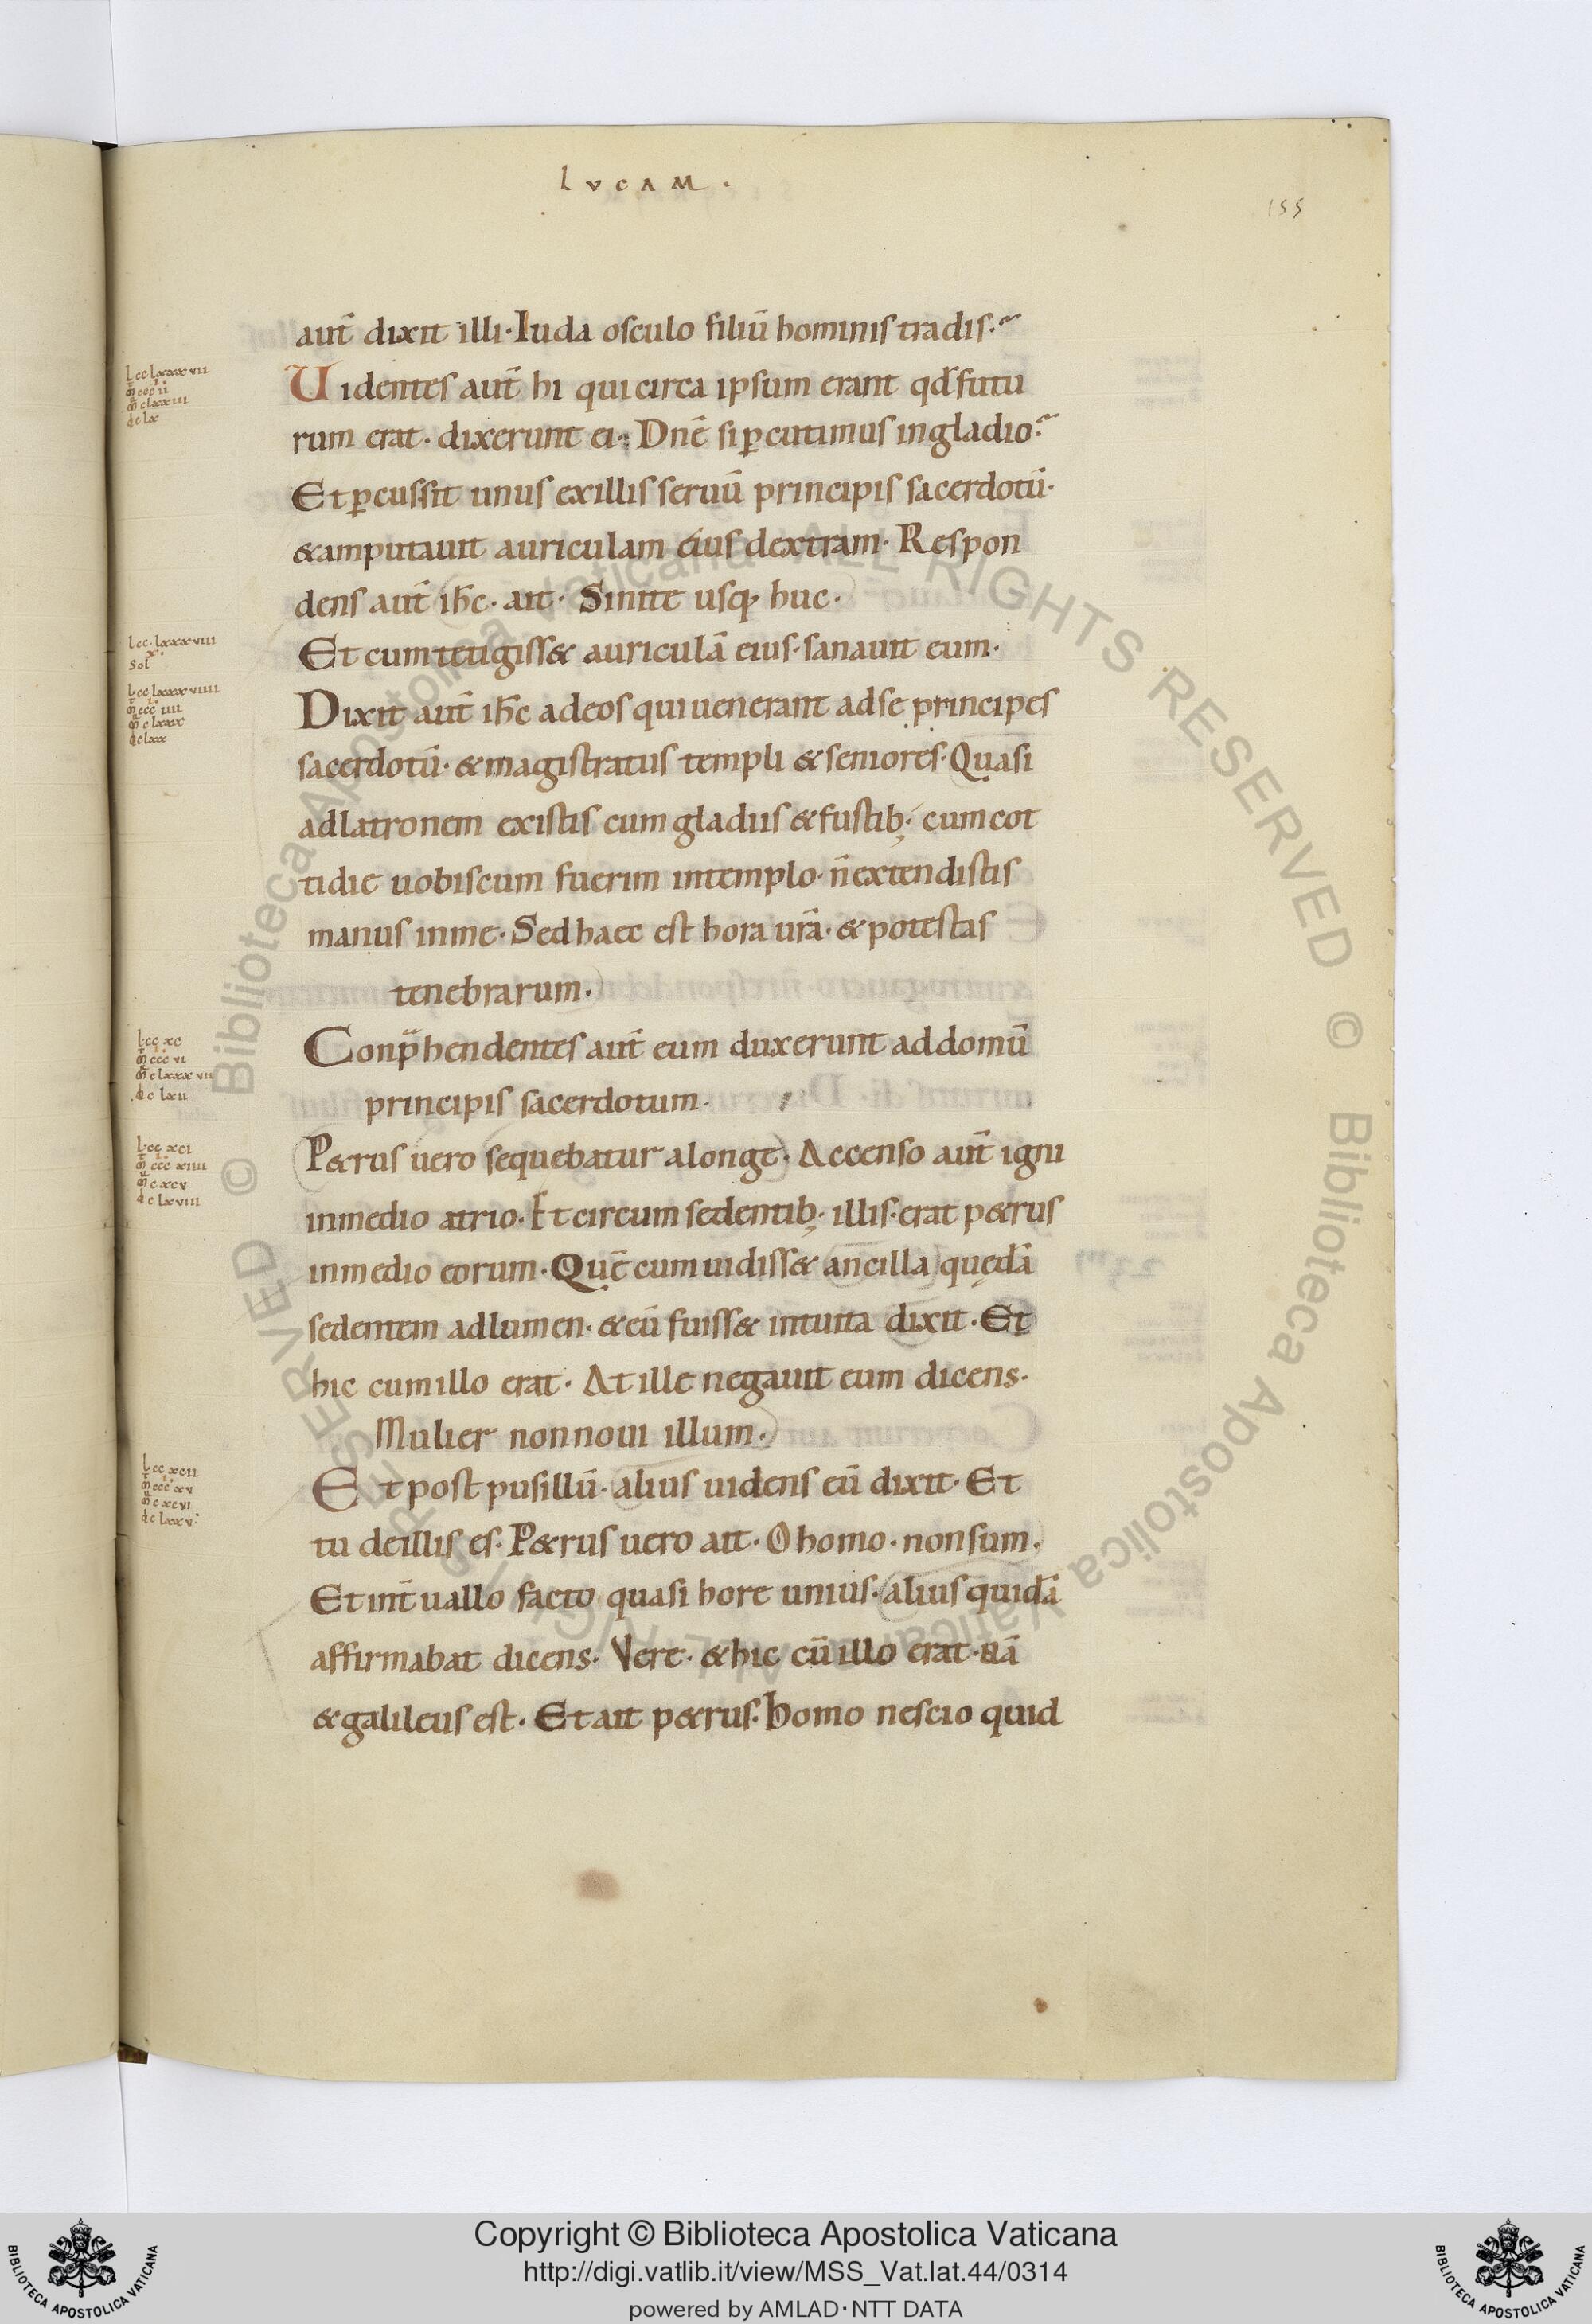 LVCAM.
155
aut̄ dixit illi· Iuda osculo filiū hominis tradis·
Uidentes aut̄ hi qui circa ipsum erant qđ futu
rum erat· dixerunt ei· Dn̄e si ꝑcutimus in gladio·
Et ꝑcussit unus ex illis seruū principis sacerdotū·
& amputauit auriculam eius dextram· Respon
dens aut̄ ih̄c· ait· Sinite usq; huc·
Et cum tetigiss& auriculā eius· sanauit eum·
Dixit aut̄ ih̄c ad eos qui uenerant ad se principes
sacerdotū· & magistratus templi & seniores· Quasi
ad latronem existis cum gladiis & fustib;· cum cot
tidie uobiscum fuerim in templo· n̄ extendistis
manus in me· Sed haec est hora ur̄a· & potestas
tenebrarum·
Conp̄hendentes aut̄ eum duxerunt ad domū
principis sacerdotum·
P&rus uero sequebatur a longe· Accenso aut̄ igni
in medio atrio· Et circum sedentib;· illis· erat p&rus
in medio eorum· Quē cum uidiss& ancilla quędā
sedentem ad lumen· & eū fuiss& intuita dixit· Et
hic cum illo erat· At ille negauit eum dicens·
Mulier non noui illum·
Et post pusillū· alius uidens eū dixit· Et
tu de illis es· P&rus uero ait· O homo· non sum·
Et int̄uallo facto quasi hore unius· alius quidā
affirmabat dicens· Vere· & hic cū illo erat· nā
& galileus est· Et ait p&rus· homo nescio quid
l cc lxxxvii
m ccc ii
m clxxiii
dc lx
l cc· lxxxviii
x·
sol
l cc lxxxviiii
m ccc iiii
m clxxx
dc lxx
l cc xc
m ccc vi
m clxxxvii
dc lxii
l cc xci
m ccc xiiii
m c xcv
dc lxviii
l cc xcii
m ccc xv
m c xcvi
dc lxxv
© Biblioteca Apostolica Vaticana ALL RIGHTS RESERVED
© Biblioteca Apostolica Vaticana ALL RIGHTS RESERVED
Copyright © Biblioteca Apostolica Vaticana
http://digi.vatlib.it/view/MSS_Vat.lat.44/0314
powered by AMLAD·NTT DATA
BIBLIOTECA APOSTOLICA VATICANA
BIBLIOTECA APOSTOLICA VATICANA